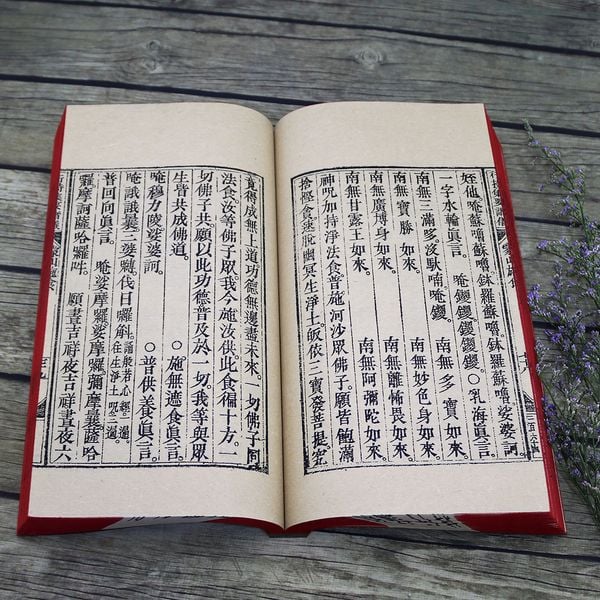 唵蘇嚕蘇嚕鉢羅蘇嚕鉢羅蘇嚕娑婆訶。
一字水輪眞言。 唵鑁鑁鑁鑁。○乳海眞言。
南無三滿哆。沒馱喃唵鑁。 南無多寶如來。
南無寶勝如來。 南無妙色身如來。
南無廣博身如來。 南無離怖畏如來。
南無甘露王如來。 南無阿彌陀如來。
神呪加持淨法食普施河沙眾佛子。願皆飽滿
捨慳貪速脫幽冥生淨土皈依三寶發菩提究
竟得成無上道功德無邊盡未來。一切佛子同
法食汝等佛子眾我今施汝供此食徧十方。一
切佛子共。願以此功德普及於一切我等與眾
生皆共成佛道。 ○施無遮食眞言。
唵穆力陵娑婆訶 ○普供養眞言。
唵誐誐曩三婆嚩。伐日囉斛。
普回向眞言。 唵娑摩囉娑摩囉彌摩曩薩哈
囉摩訶薩哈囉吽。 願晝吉祥夜吉祥晝夜六